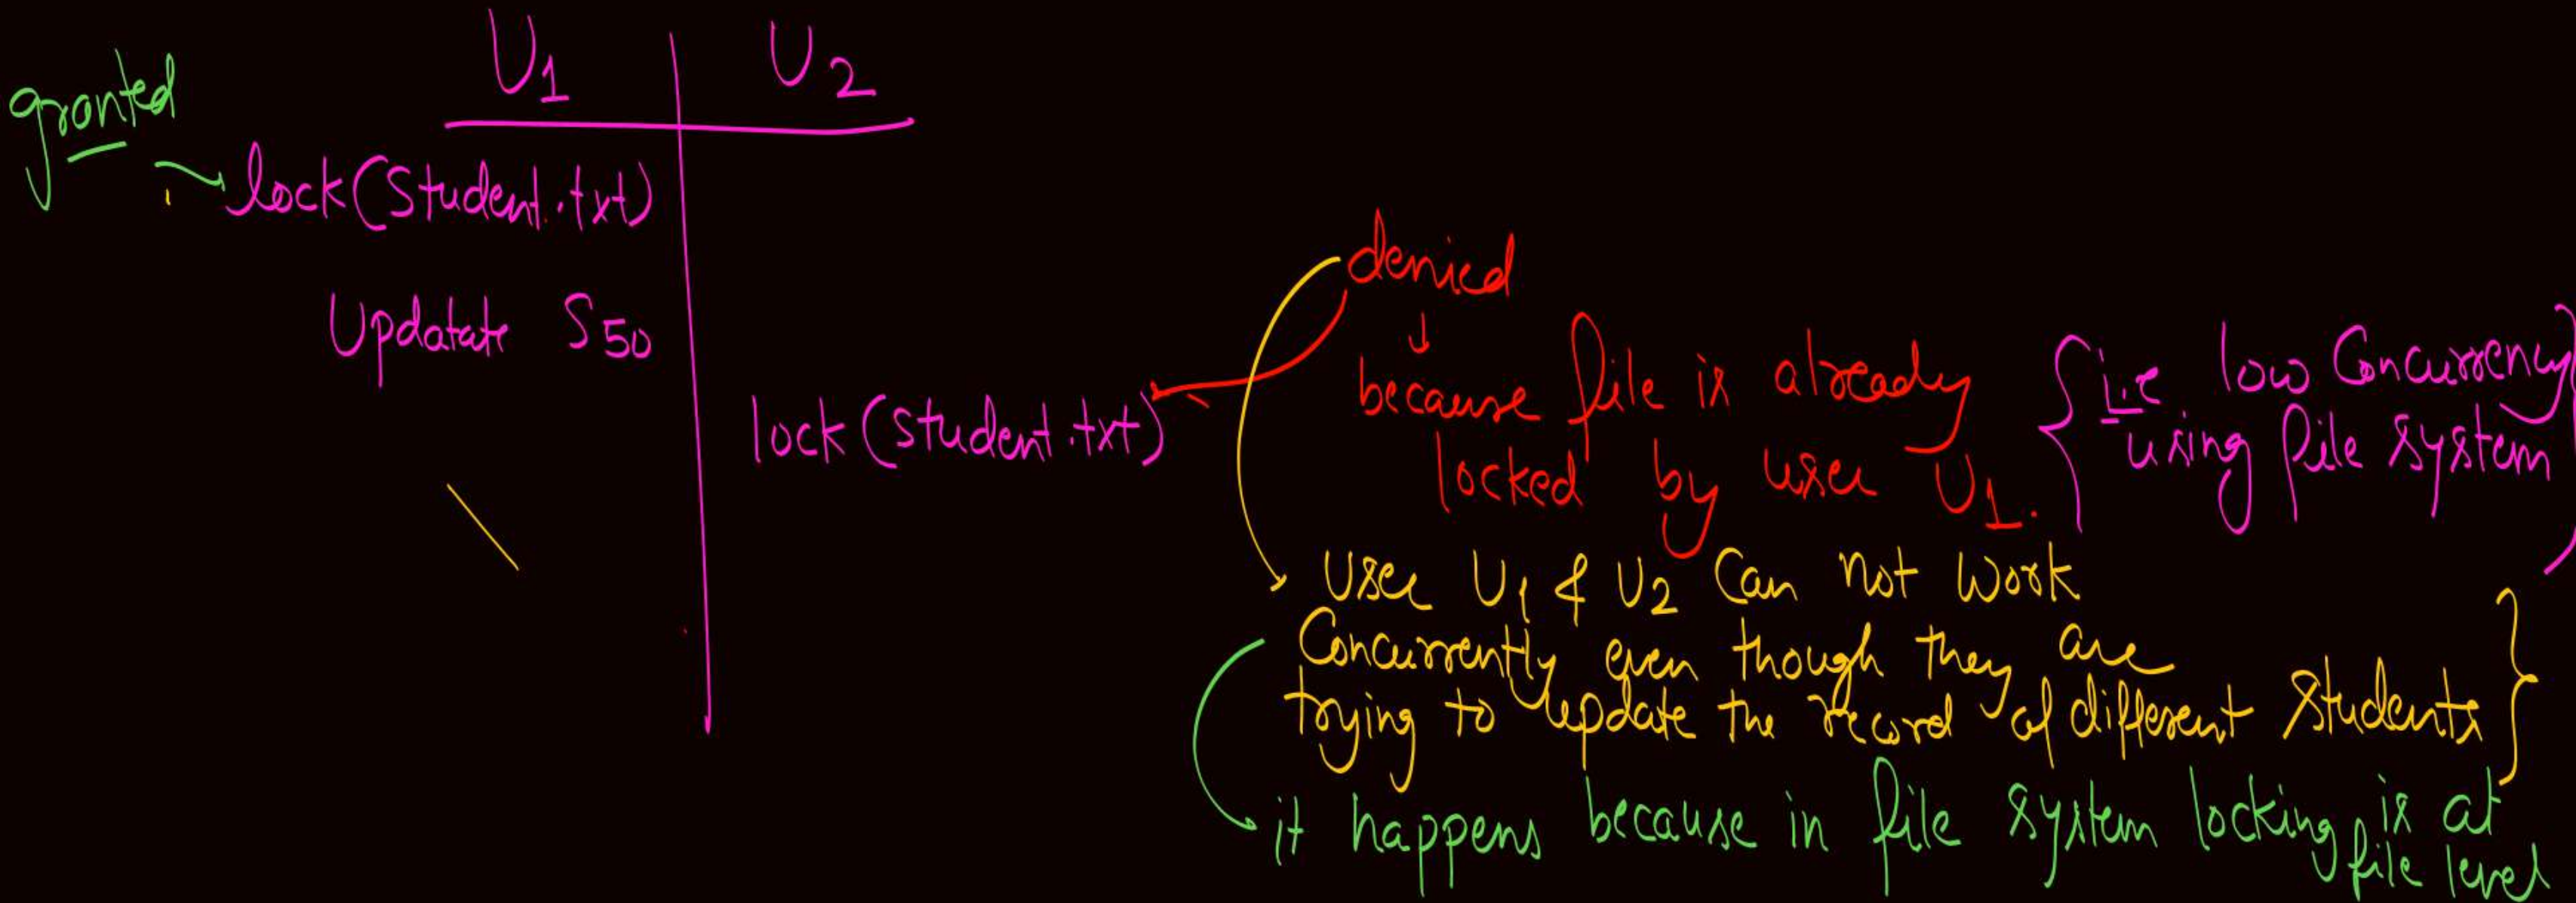 U1 U2
granted
lock(Student.txt)
Updatate S50
lock(student.txt)
denied
because file is already
locked by user U1.
{i.e low Concurrency
using file system}
User U1 & U2 Can not Work
Concurrently even though they are
trying to update the record of different students}
it happens because in file system locking is at
file level